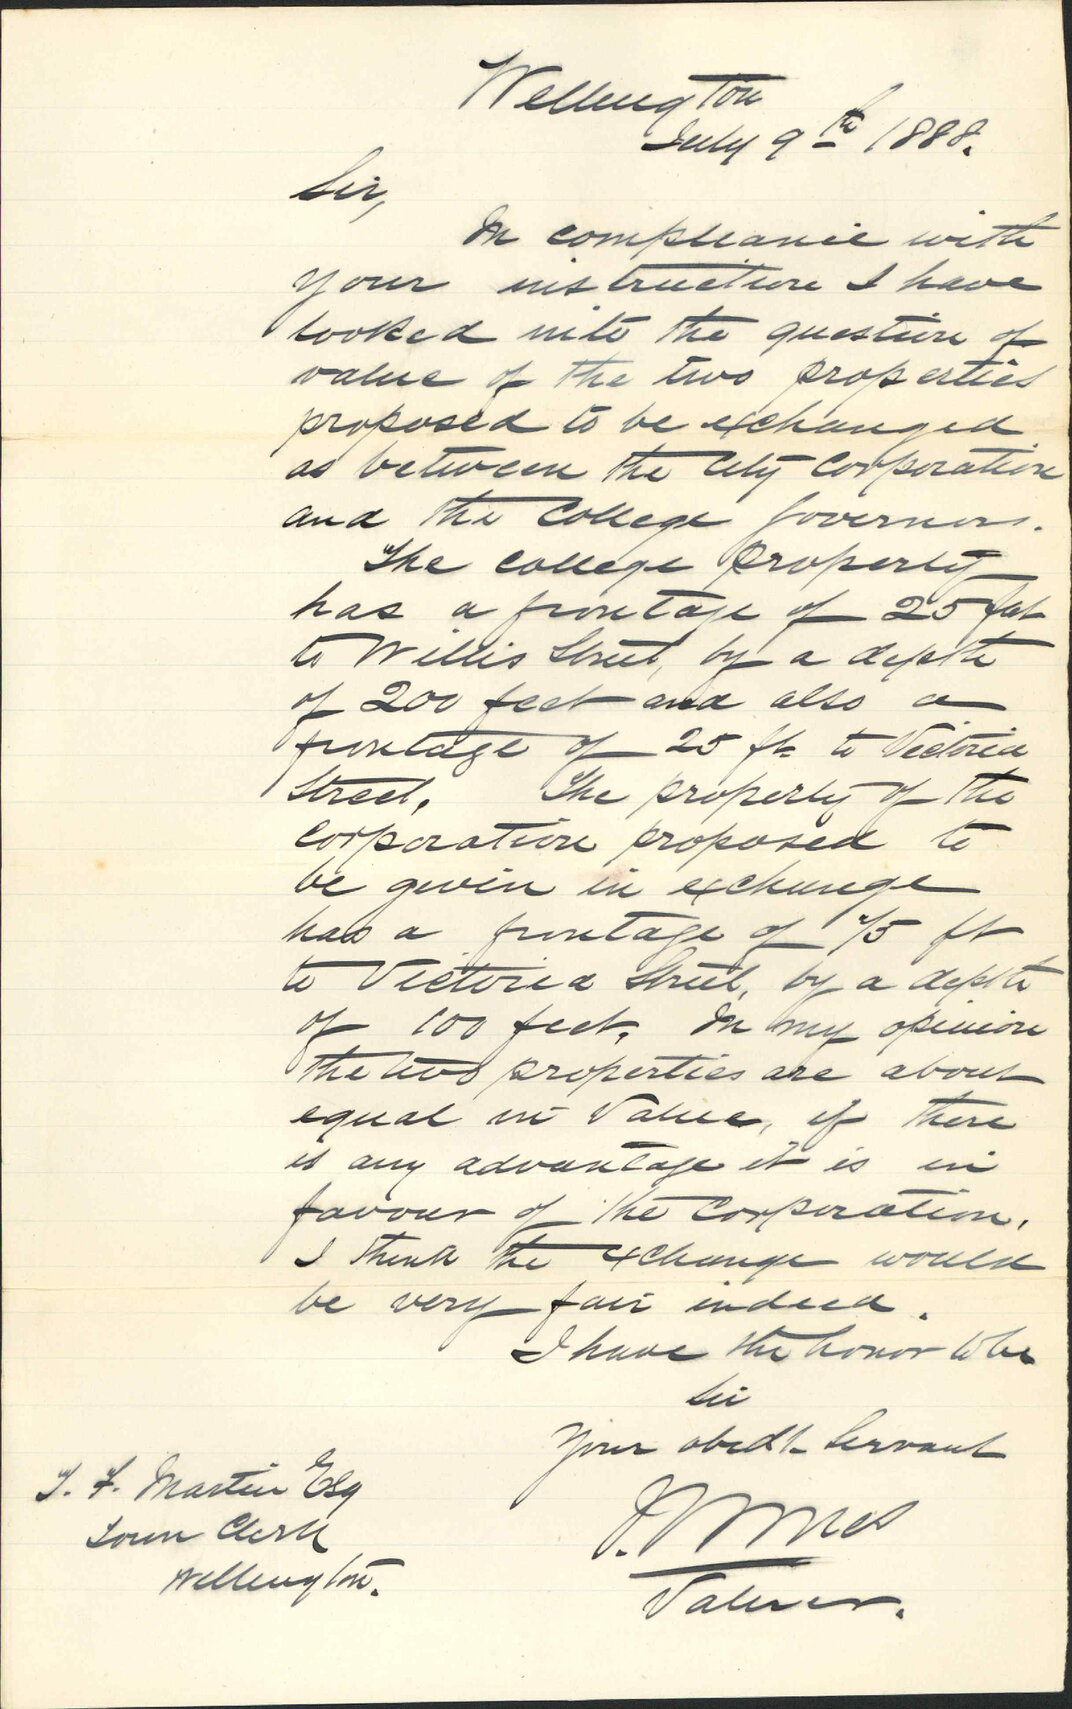 Wellington
July 9th 1888.
Sir,
In compliance with
your instruction I have
looked into the question of
value of the two properties
proposed to be exchanged
as between the City Corporation
and the College Governors.
The College Property
has a frontage of 25 feet
to Willis Street, by a depth
of 200 feet and also a
frontage of 25 ft to Victoria
Street. The property of the
Corporation proposed to
be given in exchange
has a frontage of 75 ft
to Victoria Street, by a depth
of 100 feet. In my opinion
the two properties are about
equal in value, if there
is any advantage it is in
favour of the Corporation.
I think the exchange would
be very fair indeed.
I have the honor to be
Sir
Your obedt Servant
Valuer.
T. F. Martin Esq
Town Clerk
Wellington.